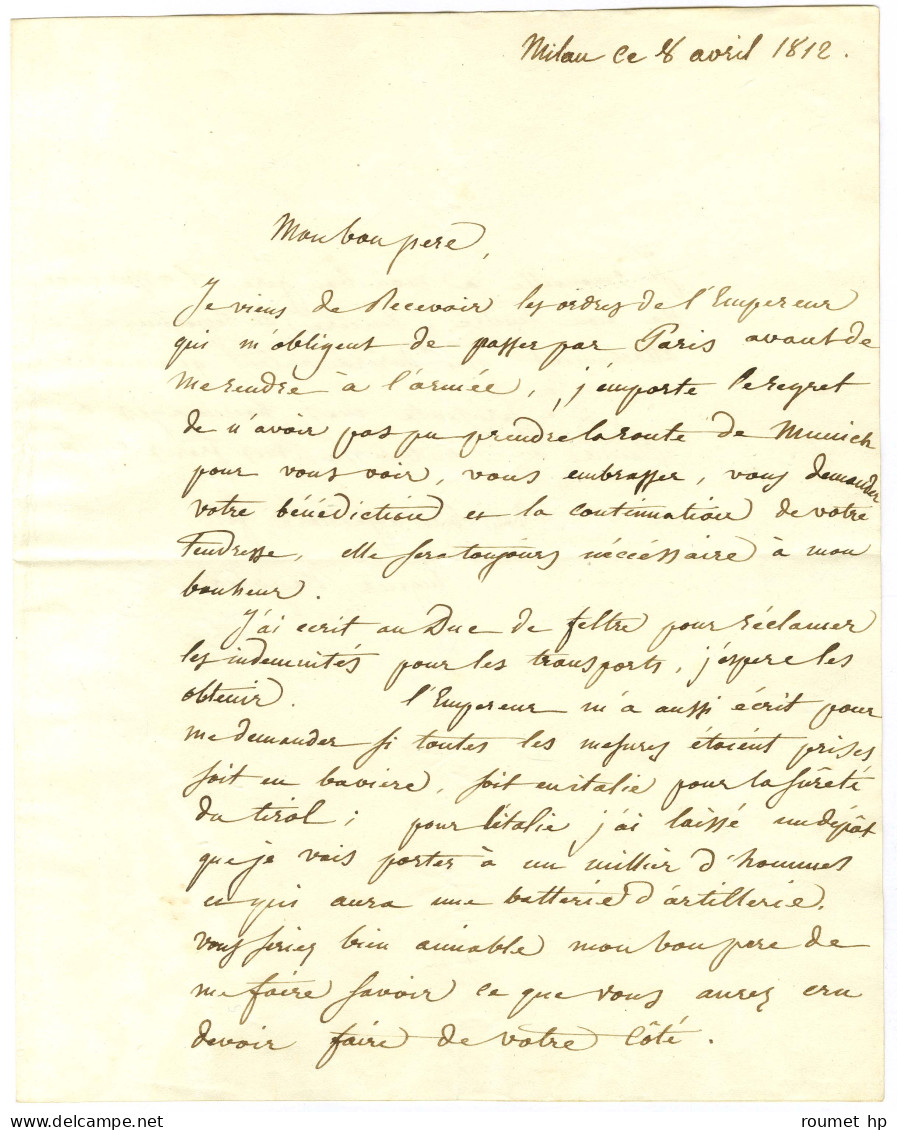 Milan ce 8 avril 1812.
Mon bon pere,
Je viens de Recevoir les ordres de l'Empereur
qui m'obligent de passer par Paris avant de
me rendre à l'armée, j'emporte le regret
de n'avoir pas pu prendre la route de Munich
pour vous voir, vous embrasser, vous demander
votre bénédiction et la continuation de votre
Tendresse, elle sera toujours nécéssaire à mon
bonheur.
J'ai ecrit au Duc de feltre pour réclamer
les indemnités pour les transports, j'espere les
obtenir. l'Empereur m'a aussi écrit pour
me demander si toutes les mesures étoient prises
soit en baviere, soit en italie pour la sûreté
du tirol; pour l'italie j'ai laissé un dépôt
que je vais porter à un millier d'hommes
et qui aura une batterie d'artillerie.
vous seriez bien aimable mon bon pere de
me faire savoir ce que vous aurez cru
devoir faire de votre côté.
DELCAMPE.NET
roumet hp